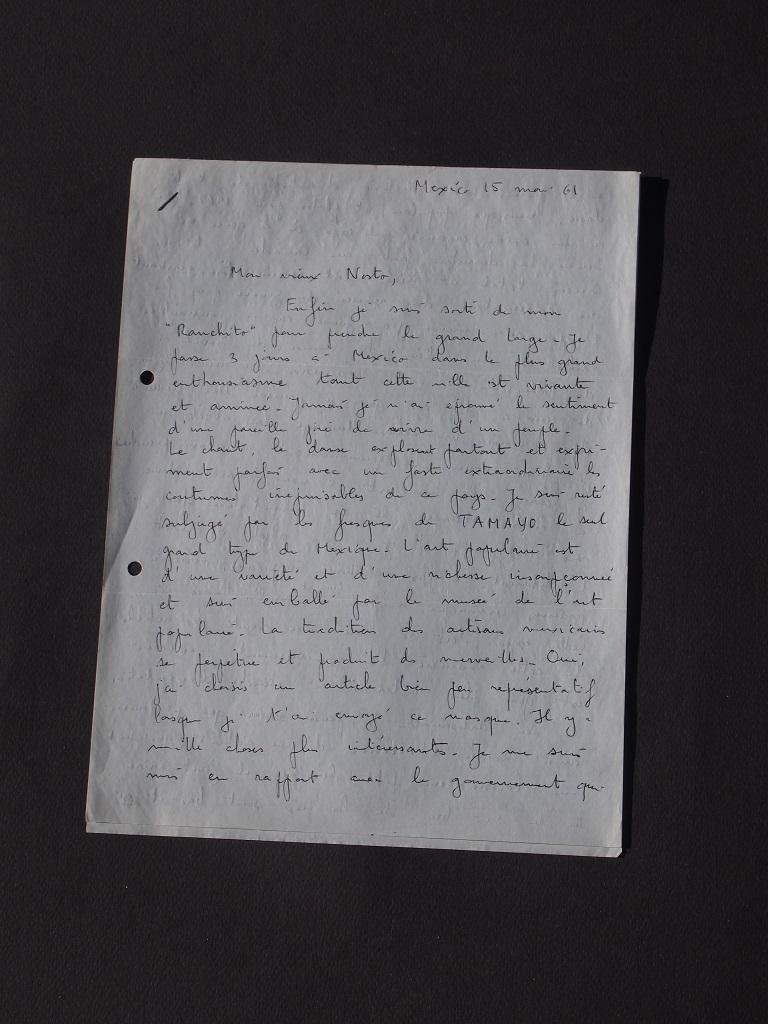 Mexico 15 mai 61
Mon vieux Nosto,
Enfin je suis sorti de mon
"Ranchito" pour prendre le grand large - Je
passe 3 jours à Mexico dans le plus grand
enthousiasme tant cette ville est vivante
et animée - Jamais je n'ai éprouvé le sentiment
d'une pareille joie de vivre d'un peuple -
Le chant, la danse explosent partout et expri-
ment parfois avec un faste extraordinaire les
coutumes inépuisables de ce pays - Je suis resté
subjugé par les fresques de TAMAYO le seul
grand type du Mexique - L'art populaire est
d'une variété et d'une richesse insoupçonnée
et suis emballé par le musée de l'art
populaire - La tradition des artisans mexicains
se perpétue et produit des merveilles - Oui,
j'ai choisis un article bien peu représentatif
lorsque je t'ai envoyé ce masque. Il y a
mille choses plus intéressantes - Je me suis
mis en rapport avec le gouvernement qui